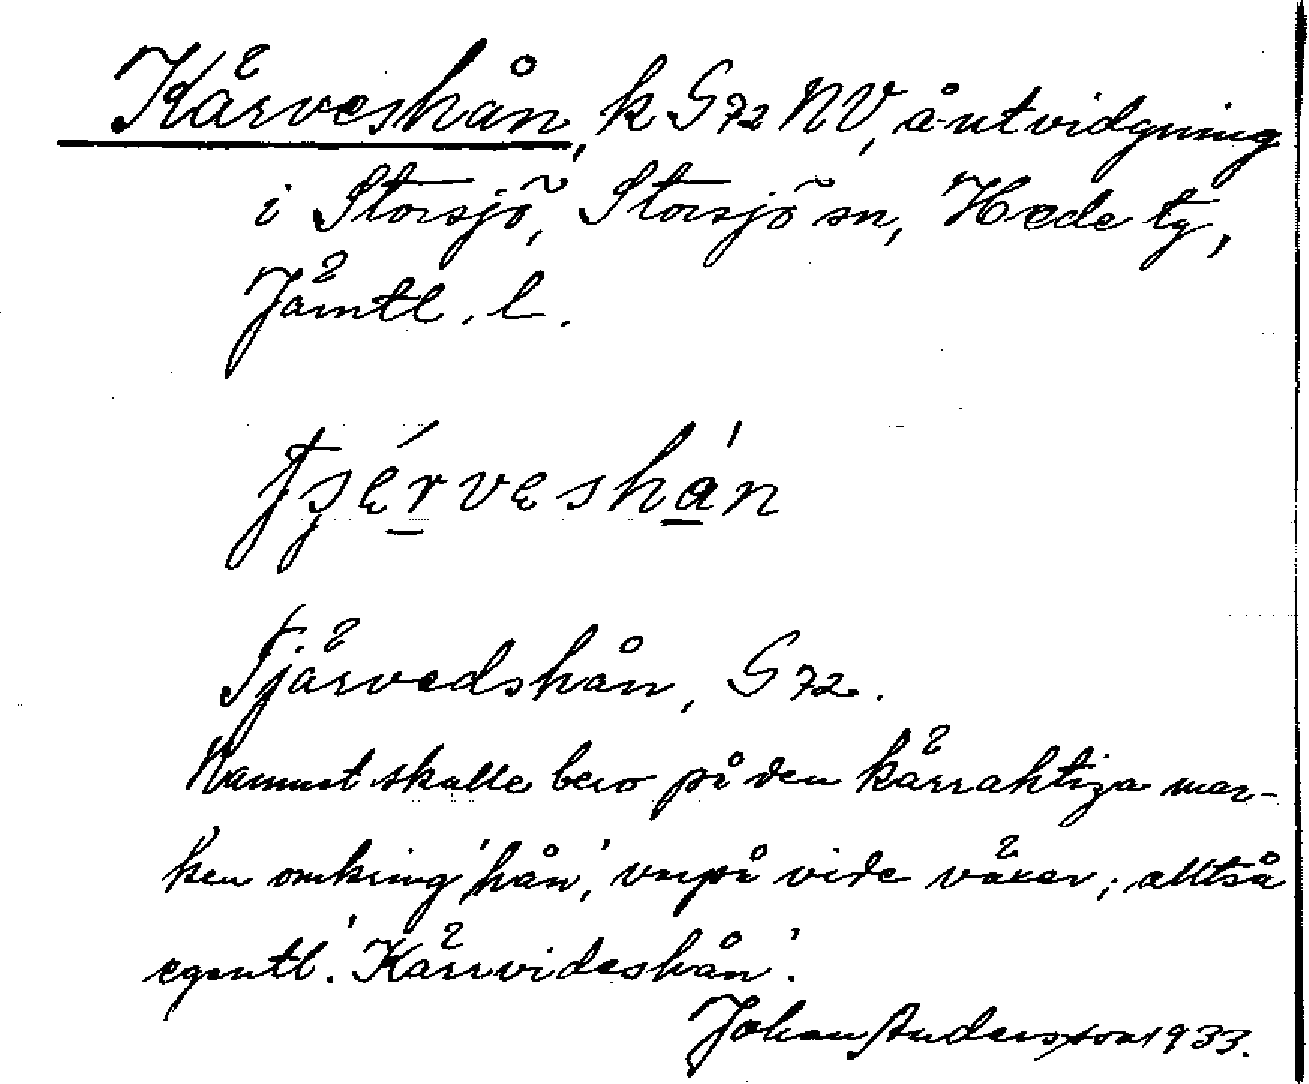 Kärveshån, k G72 NV, å-utvidgning
i Storsjö, Storsjö sn, Hede tg,
Jämtl. l.
tʂɛ́rvɛshán
Tjärvedshån, G72.
Namnet skulle bero på den kärraktiga mar-
ken omkring 'hån', varpå vide växer; alltså
egentl. 'Kärrvideshån'.
Johan Andersson 1933.